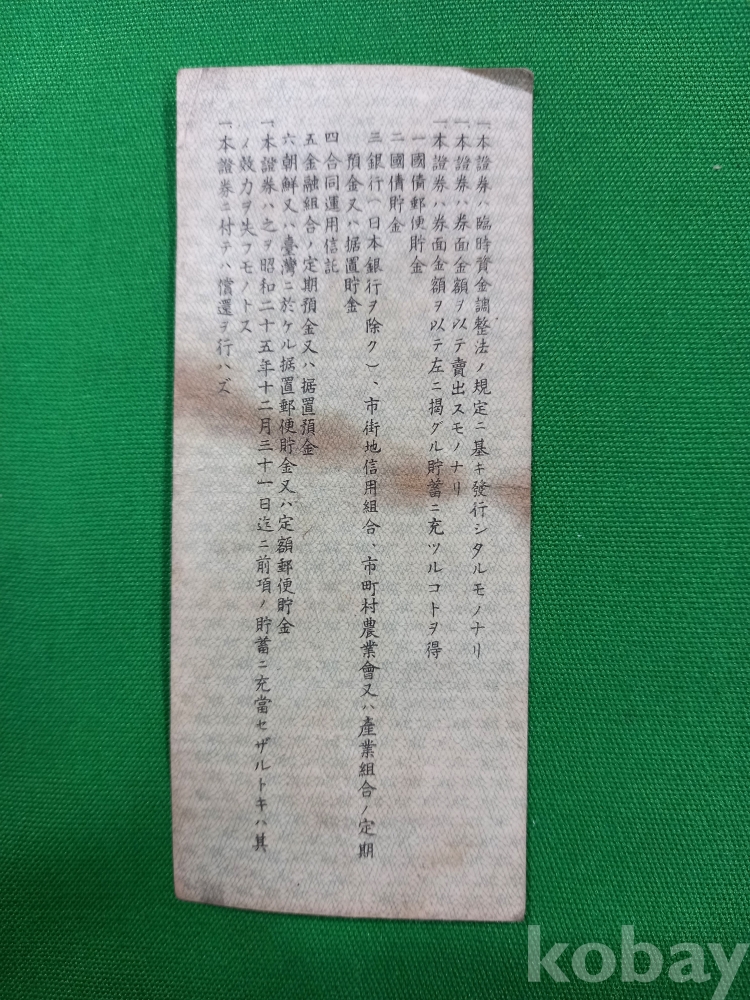 一本證券ハ臨時資金調整法ノ規定ニ基キ發行シタルモノナリ
一本證券ハ券面金額ヲ以テ賣出スモノナリ
一本證券ハ券面金額ヲ以テ左ニ揭グル貯蓄ニ充ツルコトヲ得
一國債郵便貯金
二國債貯金
三銀行(日本銀行ヲ除ク)、市街地信用組合、市町村農業會又ハ產業組合ノ定期
預金又ハ据置貯金
四合同運用信託
五金融組合ノ定期預金又ハ据置預金
六朝鮮又ハ臺灣ニ於ケル据置郵便貯金又ハ定額郵便貯金
一本證券ハ之ヲ昭和二十五年十二月三十一日迄ニ前項ノ貯蓄ニ充當セザルトキハ其
ノ效力ヲ失フモノトス
一本證券ニ付テハ償還ヲ行ハズ
kobay